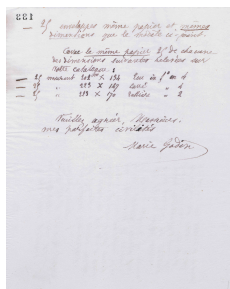 25 enveloppes même papier et mêmes
dimensions que le modèle ci-joint.
Avec le même papier 25 de chacune
des dimensions suivantes relevées sur
votre catalogue :
25 mesurant × 134 4
25 " 223 × 147 carré " 4
25 " 223 × 170 " 2
Veuillez agréer, Messieurs,
mes parfaites civilités
Marie